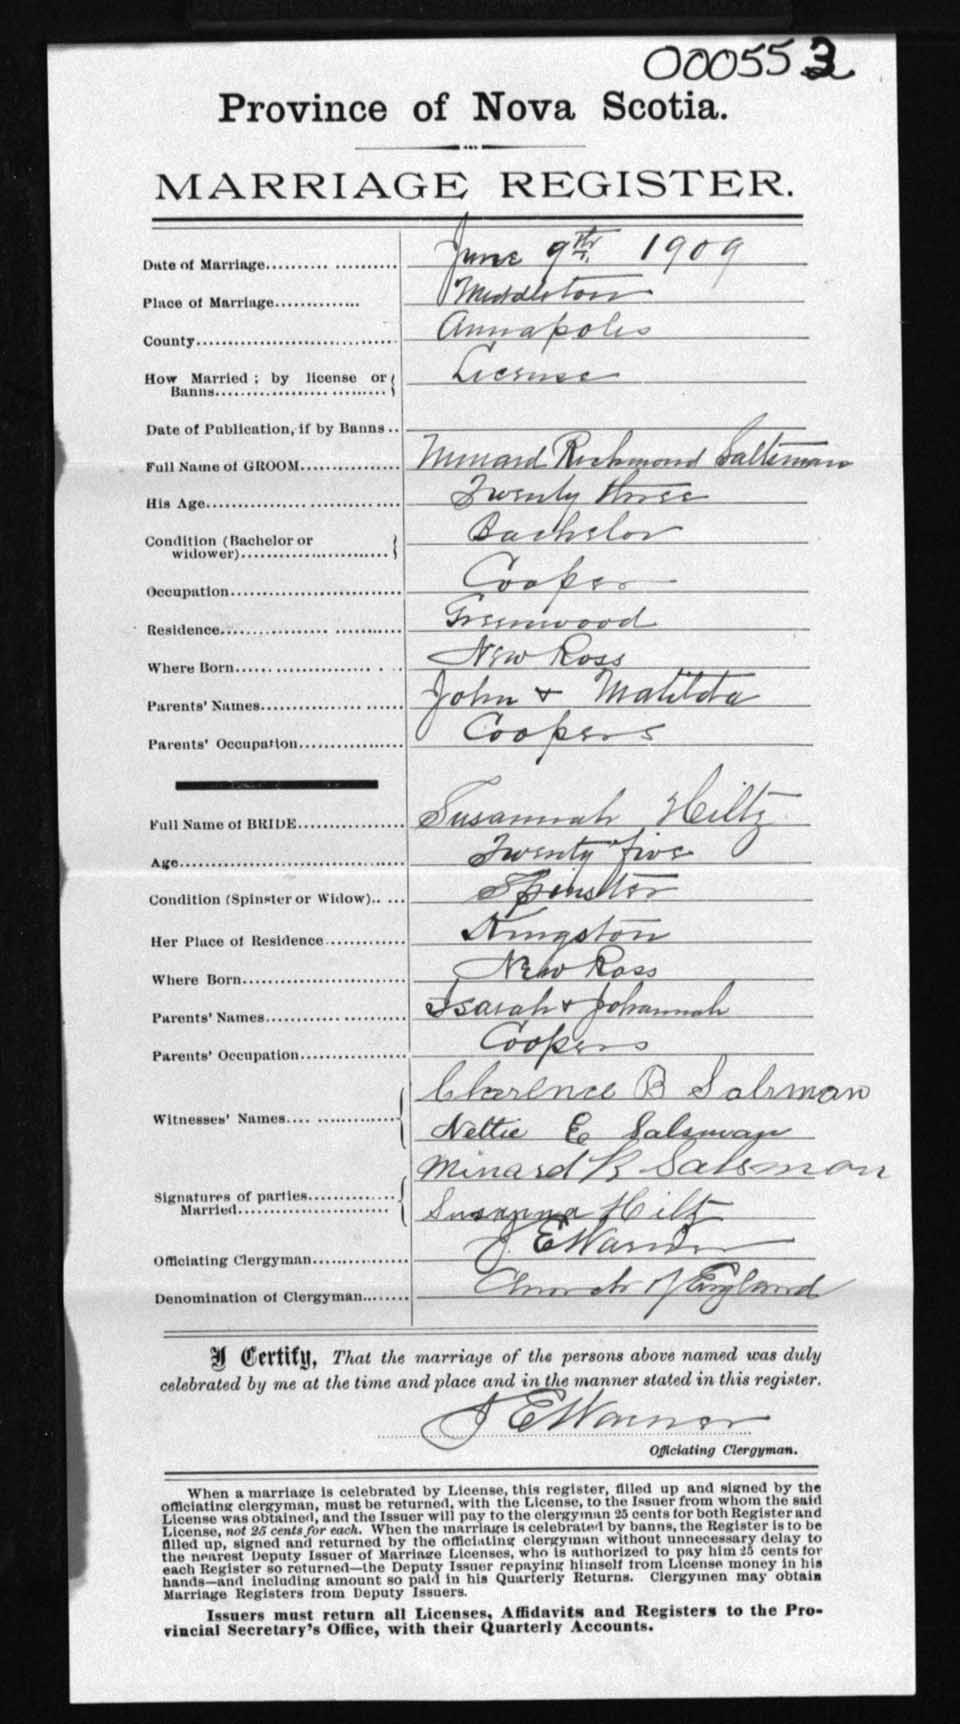 000553
Province of Nova Scotia.
MARRIAGE REGISTER.
Date of Marriage.................... June 9th 1909
Place of Marriage............. Middleton
County................................ Annapolis
How Married ; by license or License
Banns..........................
Date of Publication, if by Banns ..
Full Name of GROOM............... Minard Richmond Saltzman
His Age............................. Twenty three
Condition (Bachelor or Bachelor
widower)........................
Occupation........................... Cooper
Residence........................... Greenwood
Where Born.................... New Ross
Parents' Names..................... John & Matilda
Parents' Occupation................ Coopers
Full Name of BRIDE............... Susannah Hiltz
Age................................. Twenty five
Condition (Spinster or Widow)..... Spinster
Her Place of Residence............ Kingston
Where Born........................ New Ross
Parents' Names..................... Isaiah & Johannah
Parents' Occupation............... Coopers
Clarence B Salsman
Witnesses' Names..................
Nettie E Salsman
Minard R Salsman
Signatures of parties..............
Married......................
Susanna Hiltz
Officiating Clergyman.............. J. E Warner
Denomination of Clergyman....... Church of England
I Certify, That the marriage of the persons above named was duly
celebrated by me at the time and place and in the manner stated in this register.
J E Warner
Officiating Clergyman.
When a marriage is celebrated by License, this register, filled up and signed by the
officiating clergyman, must be returned, with the License, to the Issuer from whom the said
License was obtained, and the Issuer will pay to the clergyman 25 cents for both Register and
License, not 25 cents for each. When the marriage is celebrated by banns, the Register is to be
filled up, signed and returned by the officiating clergyman without unnecessary delay to
the nearest Deputy Issuer of Marriage Licenses, who is authorized to pay him 25 cents for
each Register so returned—the Deputy Issuer repaying himself from License money in his
hands—and including amount so paid in his Quarterly Returns. Clergymen may obtain
Marriage Registers from Deputy Issuers.
Issuers must return all Licenses, Affidavits and Registers to the Pro-
vincial Secretary's Office, with their Quarterly Accounts.